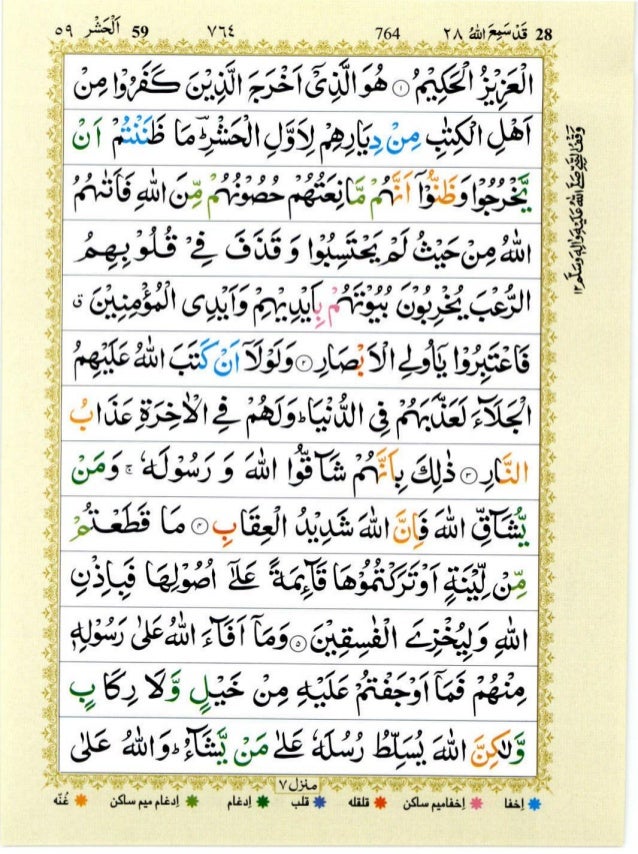 28 قَدْ سَمِعَ اللهُ ٢٨ 764 ٧٦٤ 59 اَلْحَشْر ٥٩
الْعَزِيْزُ الْحَكِيْمُ ۝١ هُوَ الَّذِيْۤ اَخْرَجَ الَّذِيْنَ كَفَرُوْا مِنْ
اَهْلِ الْكِتٰبِ مِنْ دِيَارِهِمْ لِاَوَّلِ الْحَشْرِؔ مَا ظَنَنْتُمْ اَنْ
يَّخْرُجُوْا وَظَنُّوْۤا اَنَّهُمْ مَّانِعَتُهُمْ حُصُوْنُهُمْ مِّنَ اللهِ فَاَتٰىهُمُ
اللهُ مِنْ حَيْثُ لَمْ يَحْتَسِبُوْا وَقَذَفَ فِيْ قُلُوْبِهِمُ
الرُّعْبَ يُخْرِبُوْنَ بُيُوْتَهُمْ بِاَيْدِيْهِمْ وَاَيْدِى الْمُؤْمِنِيْنَ ق
فَاعْتَبِرُوْا يٰۤاُولِى الْاَبْصَارِ ۝٢ وَلَوْلَاۤ اَنْ كَتَبَ اللهُ عَلَيْهِمُ
الْجَلَآءَ لَعَذَّبَهُمْ فِى الدُّنْيَا ؕ وَلَهُمْ فِى الْاٰخِرَةِ عَذَابُ
النَّارِ ۝٣ ذٰلِكَ بِاَنَّهُمْ شَآقُّوا اللهَ وَ رَسُوْلَهٗ ۚ وَمَنْ
يُّشَآقِّ اللهَ فَاِنَّ اللهَ شَدِيْدُ الْعِقَابِ ۝٤ مَا قَطَعْتُمْ
مِّنْ لِّيْنَةٍ اَوْ تَرَكْتُمُوْهَا قَآئِمَةً عَلٰۤى اُصُوْلِهَا فَبِاِذْنِ
اللهِ وَلِيُخْزِيَ الْفٰسِقِيْنَ ۝٥ وَمَاۤ اَفَآءَ اللهُ عَلٰى رَسُوْلِهٖ
مِنْهُمْ فَمَاۤ اَوْجَفْتُمْ عَلَيْهِ مِنْ خَيْلٍ وَّلَا رِكَابٍ
وَّلٰكِنَّ اللهَ يُسَلِّطُ رُسُلَهٗ عَلٰى مَنْ يَّشَآءُ ؕ وَاللهُ عَلٰى
منزل ٧
اِخفا اِخفامیم ساکن قلقله قلب اِدغام اِدغام میم ساکن غُنّه
وَقْفُ النَّبِيِّ صَلَّى اللهُ عَلَيْهِ وَاٰلِهٖ وَسَلَّمَ ١٢